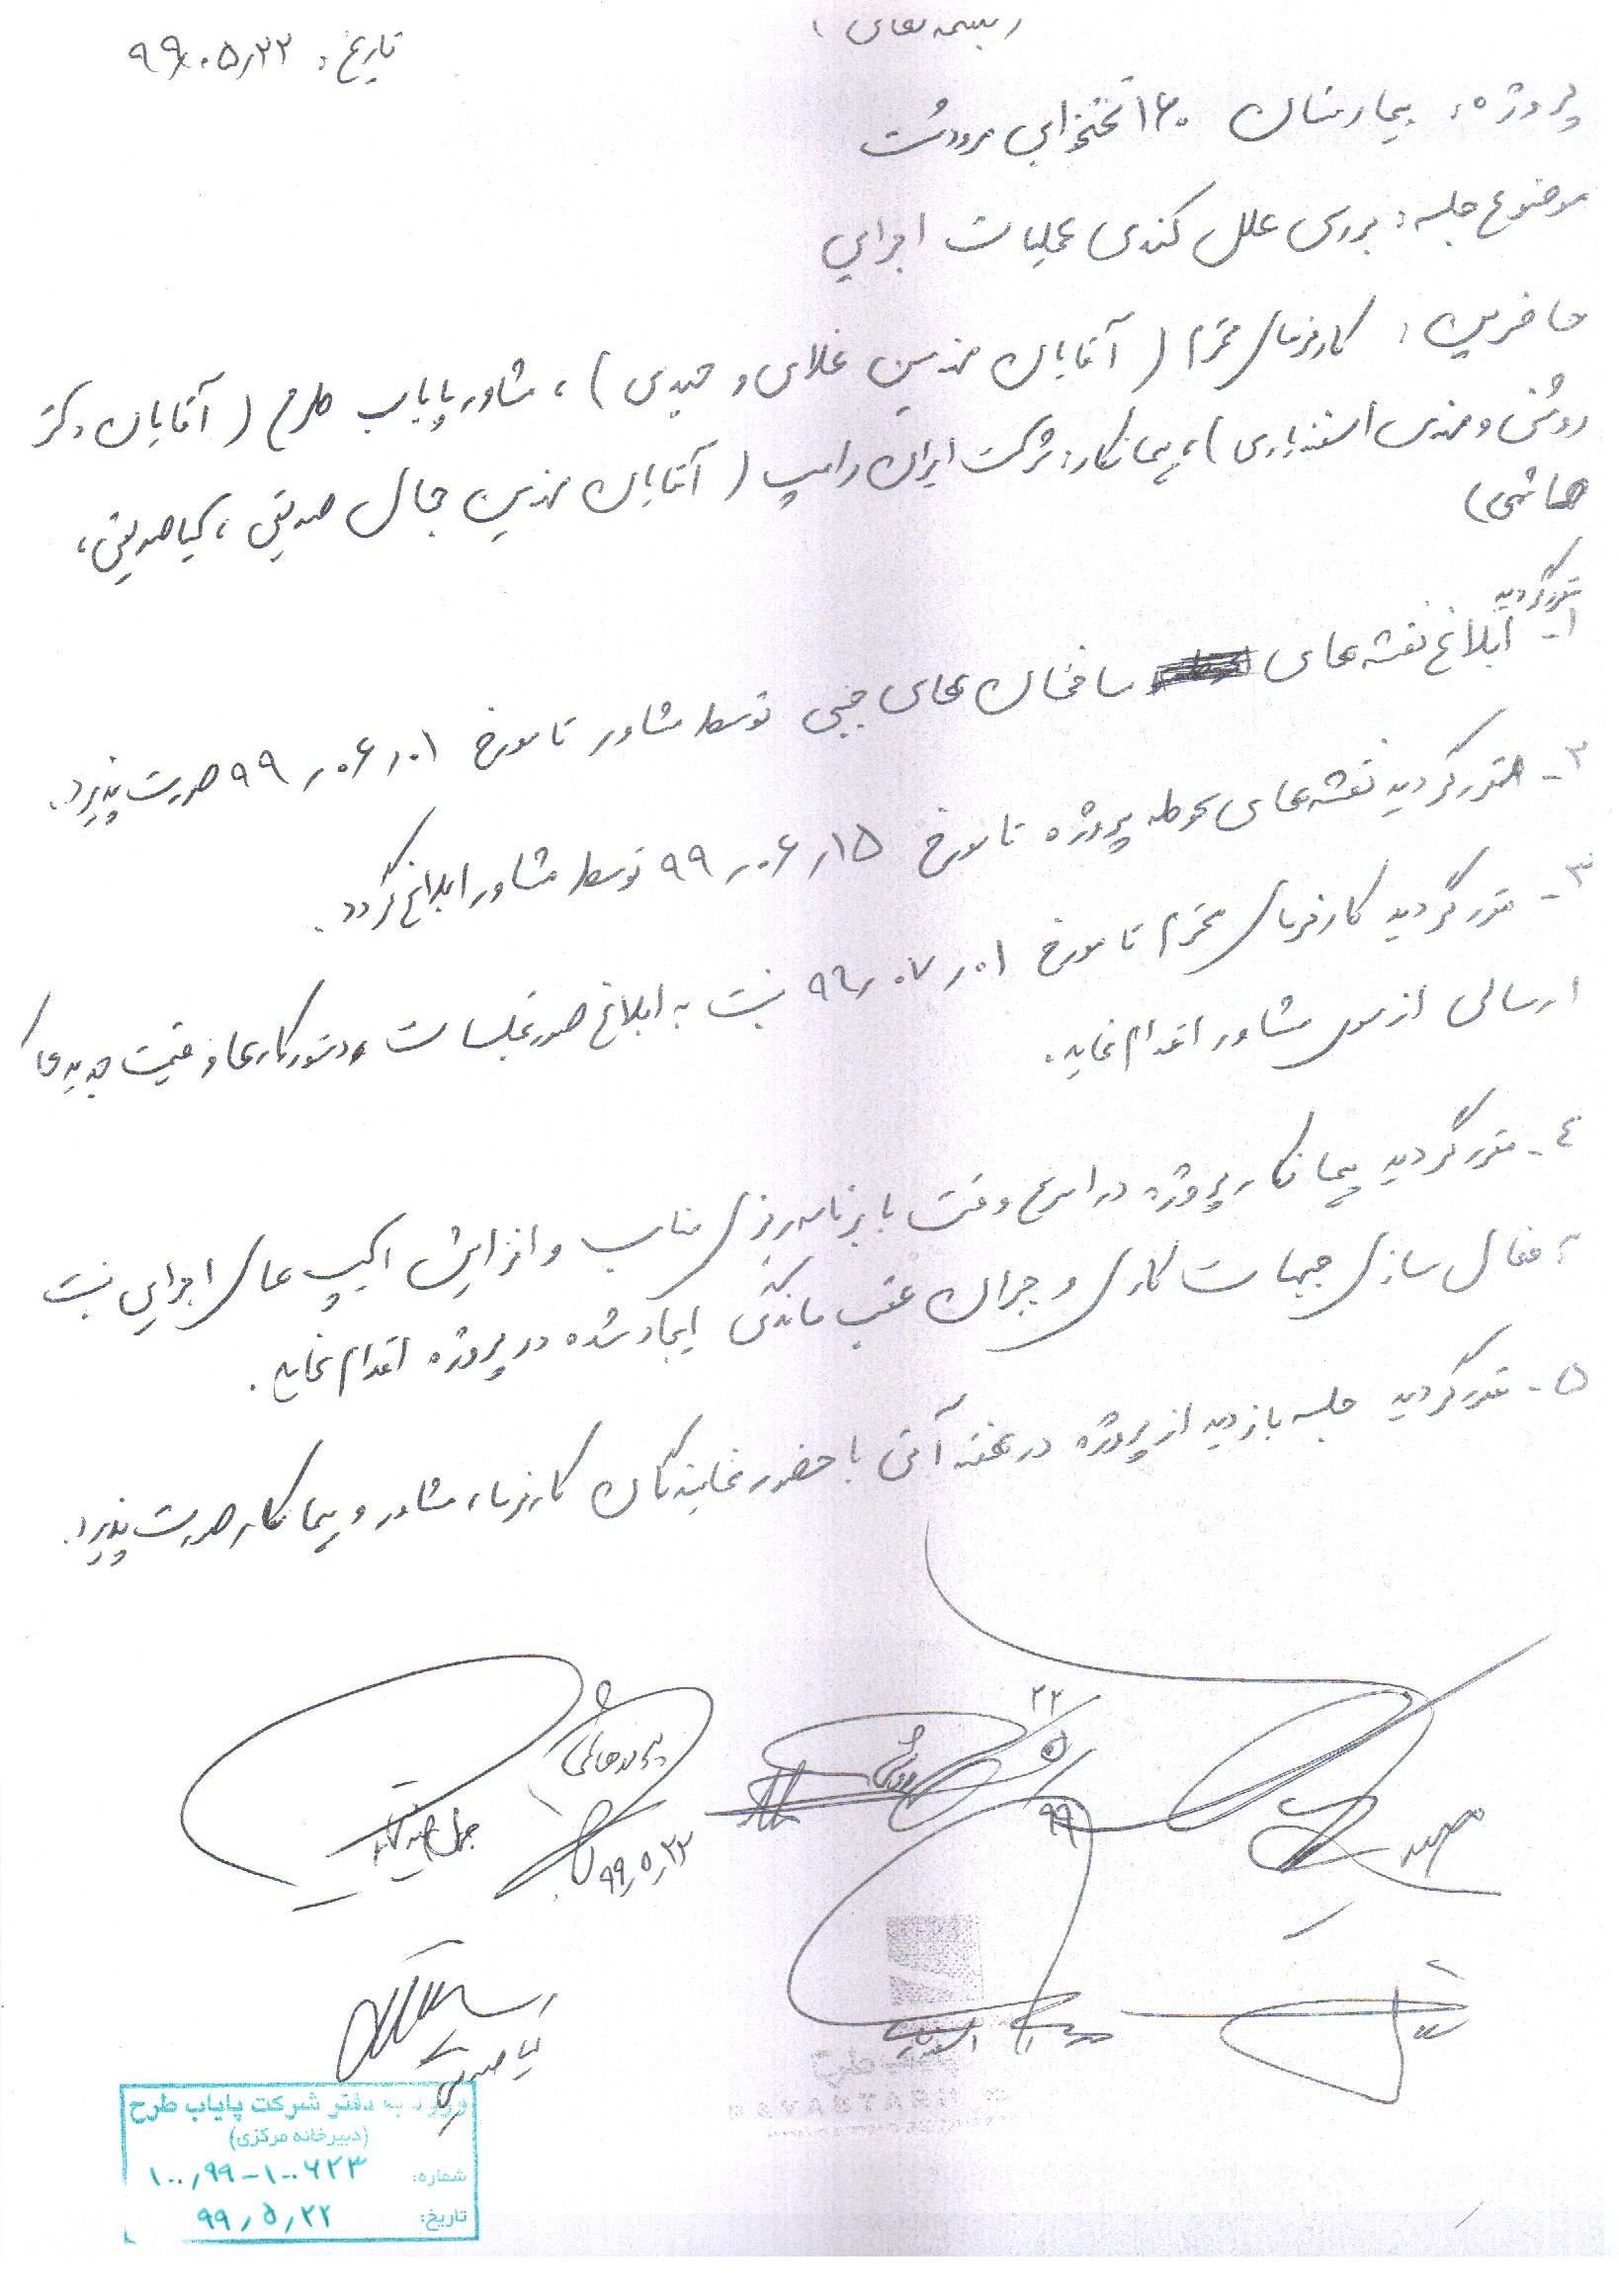 (بسمه تعالی)
تاریخ: ۹۹/۰۵/۲۲
پروژه: بیمارستان ۱۶۰ تختخوابی مرودشت
موضوع جلسه: بررسی علل کندی عملیات اجرایی
حاضرین: کارفرمای محترم (آقایان مهندسین غلامی و حیدری)، مشاور پایاب طرح (آقایان دکتر
روشنی و مهندس اسفندیاری)، پیمانکار: شرکت ایران رامپ (آقایان مهندسین جمال صدیقی، کیا صدیقی،
هاشمی)
مقرر گردید
۱- ابلاغ نقشه های ساختمان های جنبی توسط مشاور تا مورخ ۹۹/۰۶/۰۱ صورت پذیرد.
۲- مقرر گردید نقشه های محوطه پروژه تا مورخ ۹۹/۰۶/۱۵ توسط مشاور ابلاغ گردد.
۳- مقرر گردید کارفرمای محترم تا مورخ ۹۹/۰۷/۰۱ نسبت به ابلاغ صورتجلسات و دستور کارها و قیمت جدیدها
ارسالی از سوی مشاور اقدام نماید.
۴- مقرر گردید پیمانکار پروژه در اسرع وقت با برنامه ریزی مناسب و افزایش اکیپ های اجرایی نسبت
به فعال سازی جبهات کاری و جبران عقب ماندگی ایجاد شده در پروژه اقدام نماید.
۵- مقرر گردید جلسه بازدید از پروژه در هفته آتی با حضور نمایندگان کارفرما، مشاور و پیمانکار صورت پذیرد.
۲۲/۵/۹۹
روشنی
۹۹/۵/۲۲
کیا صدیقی
ورود به دفتر شرکت پایاب طرح
(دبیرخانه مرکزی)
شماره: ۱۰۰/۹۹-۱۰۰۶۲۳
تاریخ: ۹۹/۵/۲۲